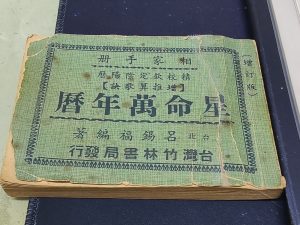 (增訂版)
相家手册
精校欽定陰陽曆
【增推算歌訣】
星命萬年曆
台北 呂錫福編著
台灣竹林書局發行